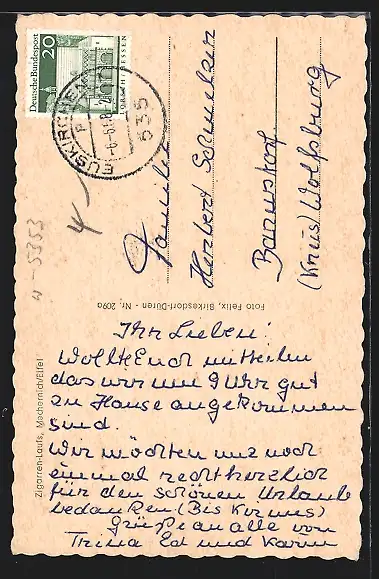 Deutsche Bundespost
20
LORSCH / HESSEN
EUSKIRCHEN
535
Familie
Herbert
Barnstorf
(Krus) Wolfsburg
4-5353
Foto Felix, Birkesdorf-Düren - Nr. 209a
Zigarren-Laufs, Mechernich/Eifel
Ihr Lieben!
Wollte Euch mitteilen
das wir um 9 Uhr gut
zu Hause angekommen
sind.
Wir möchten uns noch
einmal recht herzlich
für den schönen Urlaub
bedanken (Bis Kirmes)
Grüße an alle von
Trina Ed und Karin